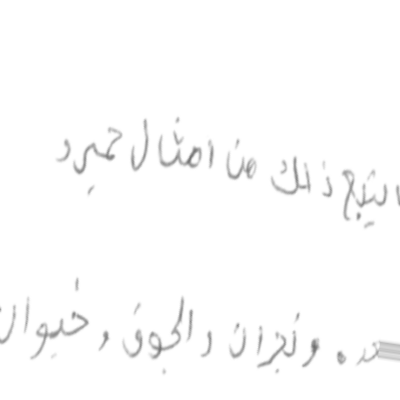 ذلك من امثال حمير و
ونجران والجوف وخيوان